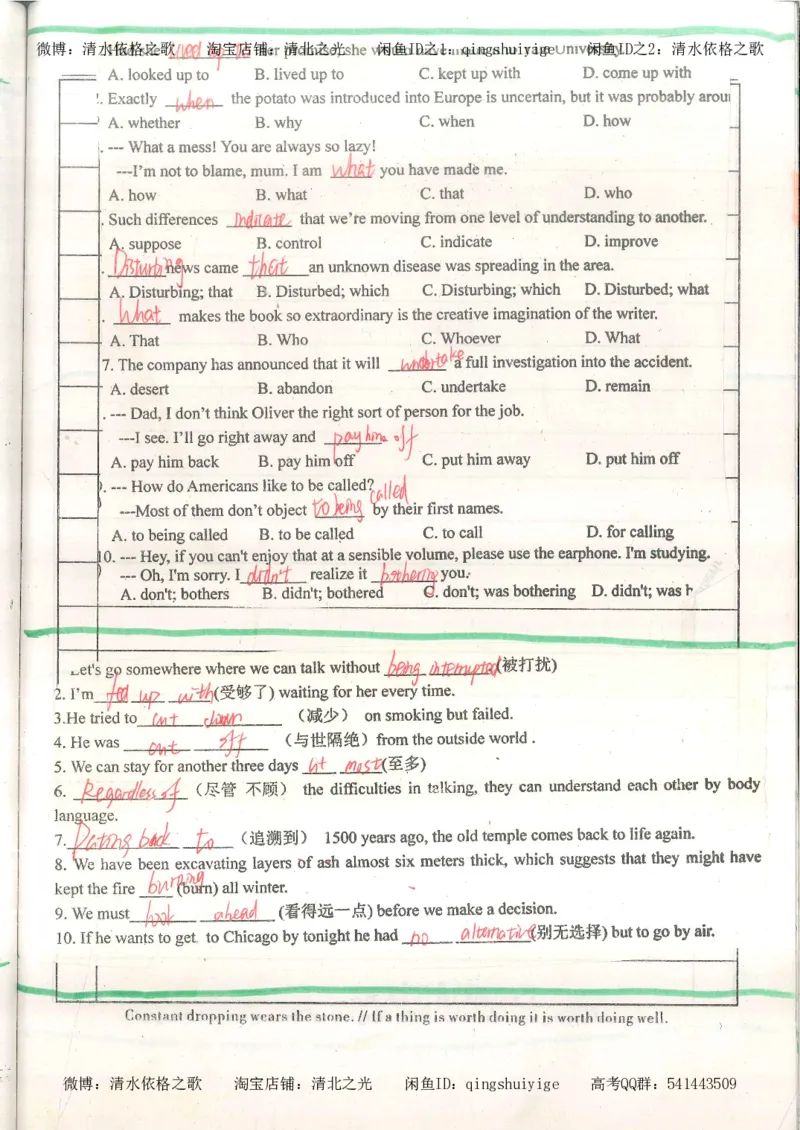 微博：清水依格之歌 淘宝店铺：清北之光 闲鱼ID之1：qingshuiyige 闲鱼ID之2：清水依格之歌
A. looked up to B. lived up to C. kept up with D. come up with
. Exactly when the potato was introduced into Europe is uncertain, but it was probably arou
A. whether B. why C. when D. how
. --- What a mess! You are always so lazy!
---I'm not to blame, mum. I am what you have made me.
A. how B. what C. that D. who
. Such differences indicate that we're moving from one level of understanding to another.
A. suppose B. control C. indicate D. improve
. Disturbing news came that an unknown disease was spreading in the area.
A. Disturbing; that B. Disturbed; which C. Disturbing; which D. Disturbed; what
. What makes the book so extraordinary is the creative imagination of the writer.
A. That B. Who C. Whoever D. What
7. The company has announced that it will undertake a full investigation into the accident.
A. desert B. abandon C. undertake D. remain
. --- Dad, I don't think Oliver the right sort of person for the job.
---I see. I'll go right away and pay him off
A. pay him back B. pay him off C. put him away D. put him off
. --- How do Americans like to be called?
---Most of them don't object to being called by their first names.
A. to being called B. to be called C. to call D. for calling
10. --- Hey, if you can't enjoy that at a sensible volume, please use the earphone. I'm studying.
--- Oh, I'm sorry. I didn't realize it bothering you.
A. don't; bothers B. didn't; bothered C. don't; was bothering D. didn't; was
Let's go somewhere where we can talk without being interrupted(被打扰)
2. I'm fed up with(受够了) waiting for her every time.
3.He tried to cut down （减少） on smoking but failed.
4. He was cut off （与世隔绝）from the outside world .
5. We can stay for another three days at most(至多)
6. Regardless of （尽管 不顾） the difficulties in talking, they can understand each other by body
language.
7. Dating back to （追溯到） 1500 years ago, the old temple comes back to life again.
8. We have been excavating layers of ash almost six meters thick, which suggests that they might have
kept the fire burning (burn) all winter.
9. We must look ahead (看得远一点) before we make a decision.
10. If he wants to get to Chicago by tonight he had no alternative(别无选择) but to go by air.
Constant dropping wears the stone. // If a thing is worth doing it is worth doing well.
微博：清水依格之歌 淘宝店铺：清北之光 闲鱼ID：qingshuiyige 高考QQ群：541443509